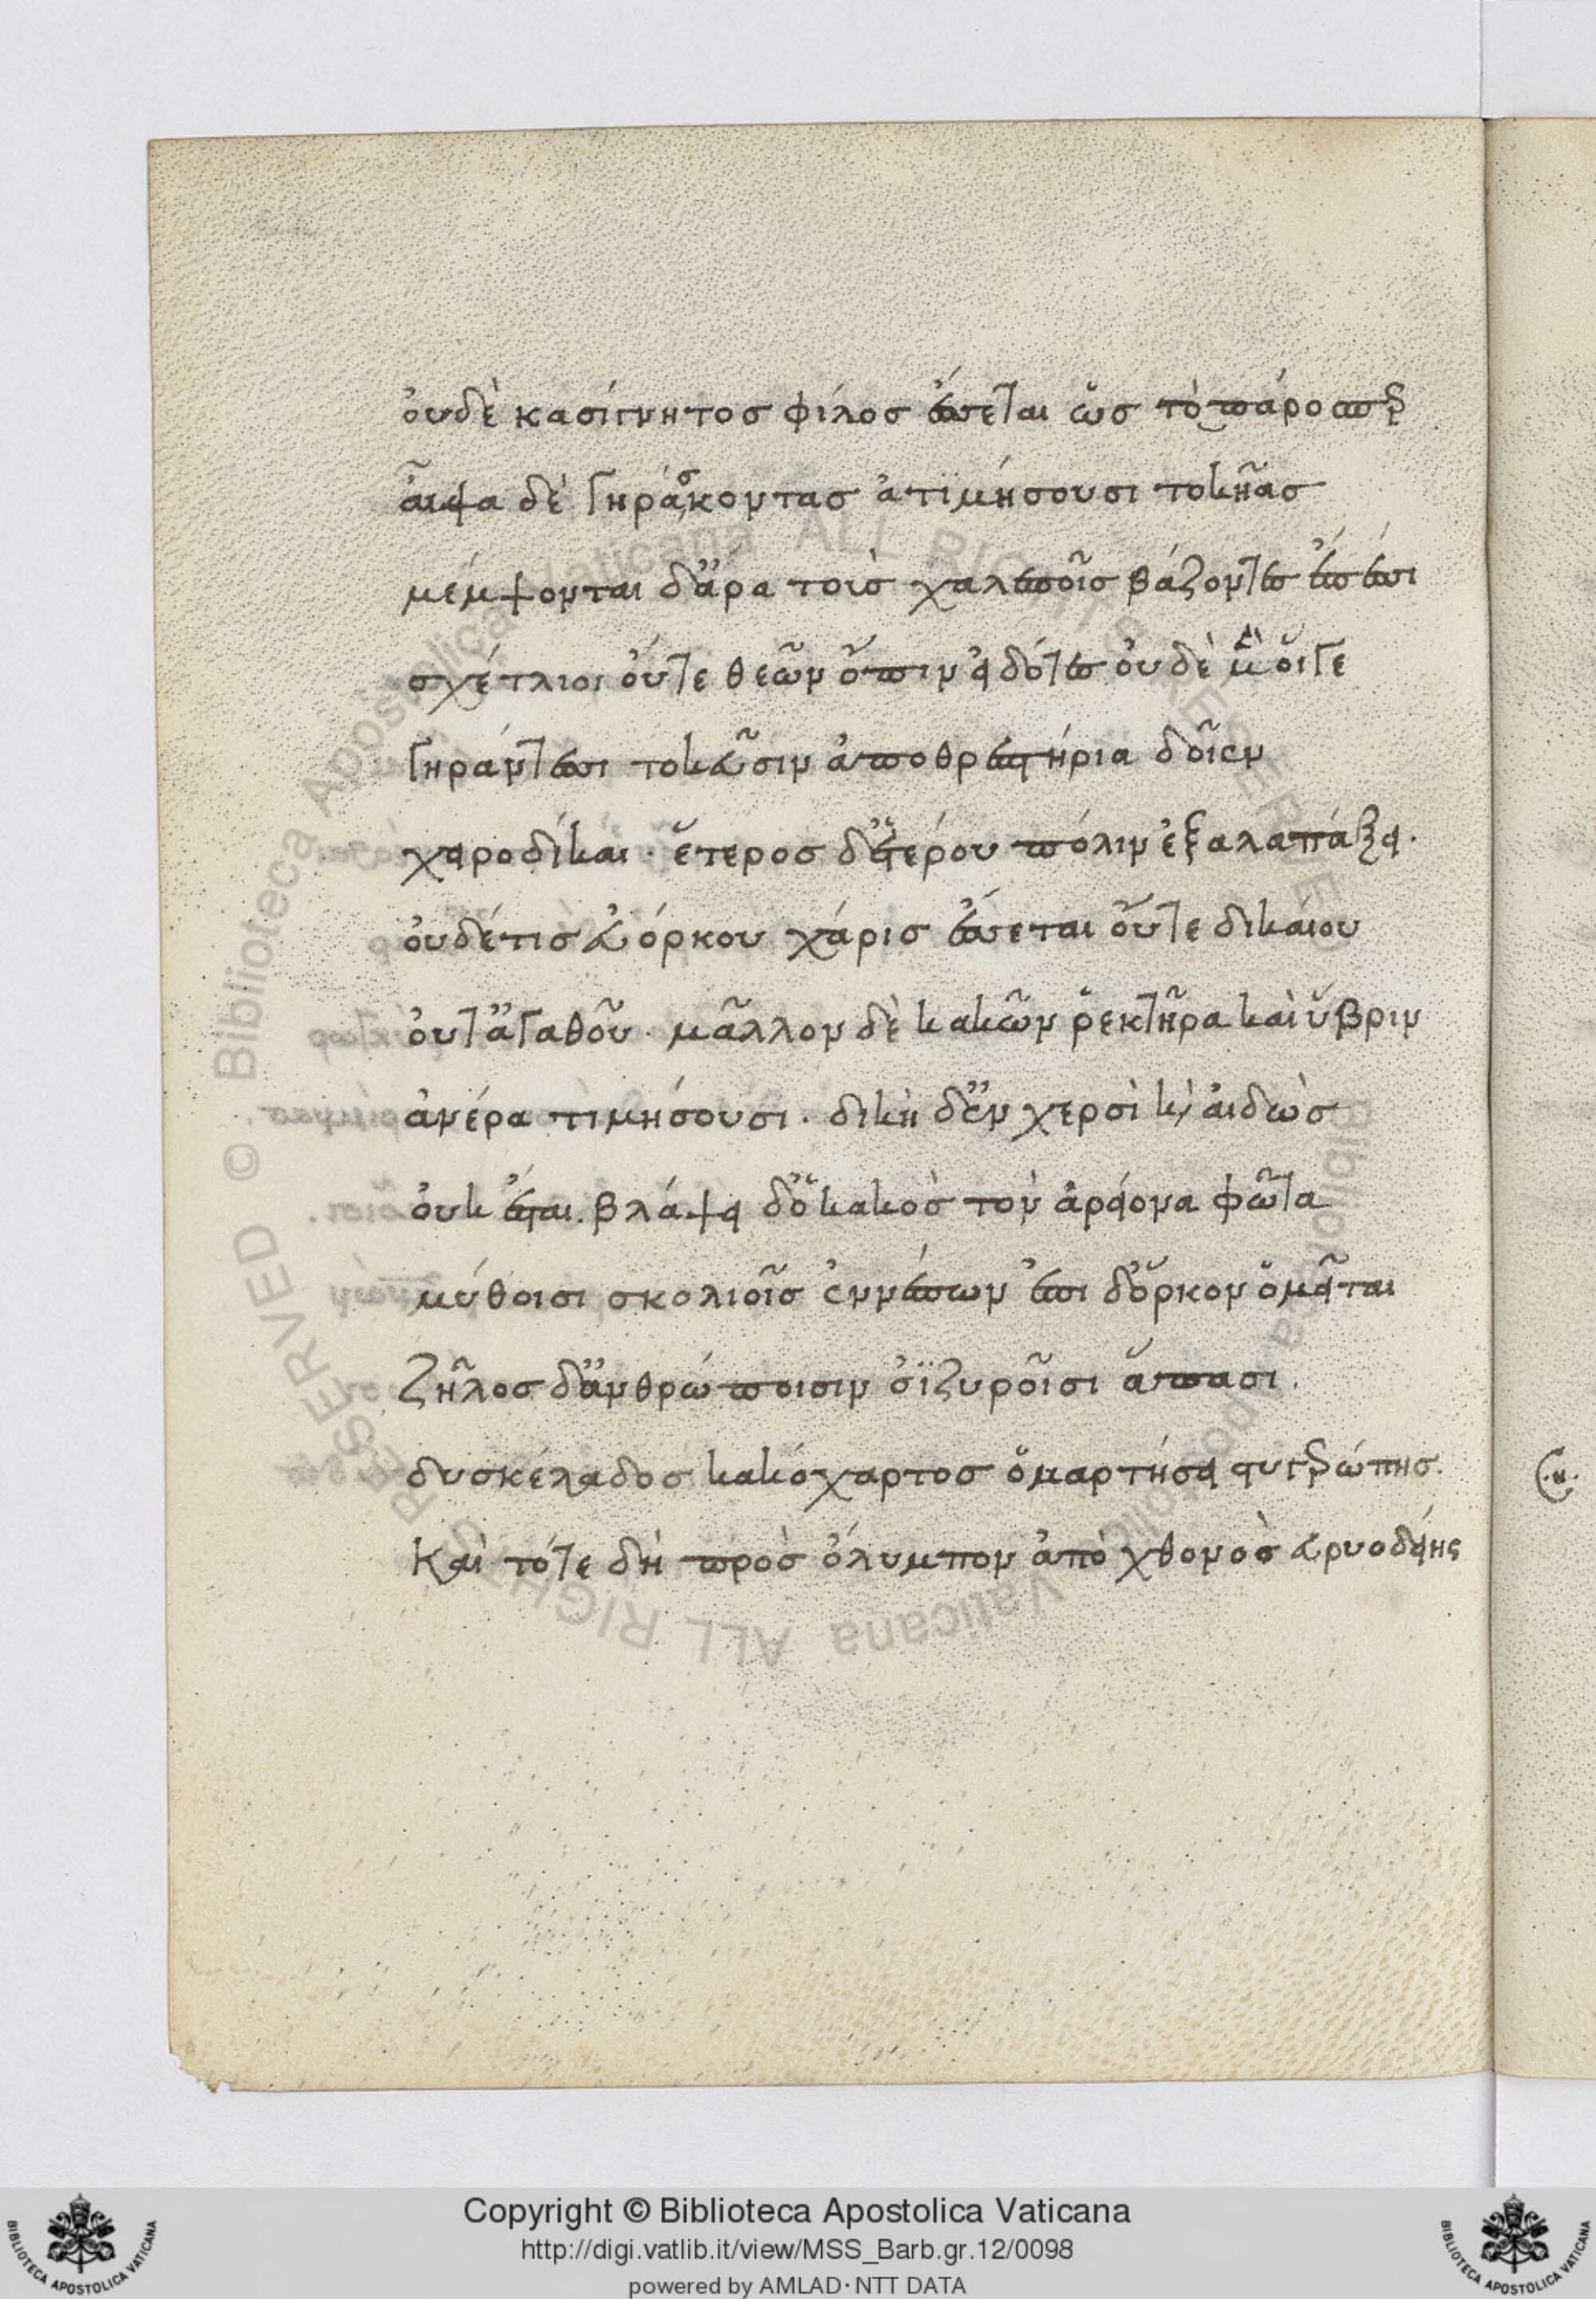 ὀυδὲ κασίγνητοσ φίλοσ ἔσσεται ὡσ τὸ πάροσ περ
ἆιψα δὲ γηράσκοντασ ἀτιμήσουσι τοκῆασ
μέμψονται δ᾽ἄρα τοὺσ χαλεποῖσ βάζοντεσ ἔπεσσι
σχέτλιοι ὀύτε θεῶν ὄπιν ειδότεσ ὀυδὲ μὲν ὅιγε
γηράντεσσι τοκεῦσιν ἀπο θρεπτήρια δοῖεν
χειροδίκαι· ἕτεροσ δ᾽ἑτέρου πόλιν ἐξαλαπάξει·
ὀυδέ τισ ἐυόρκου χάρισ ἔσσεται ὄυτε δικαίου
ὀυτ᾽ἀγαθοῦ· μᾶλλον δὲ κακῶν ῥεκτῆρα καὶ ὕβριν
ἀνέρα τιμήσουσι· δίκη δ᾽ἐν χερσὶ κ, ἀιδὼσ
ὀυκ ἔσται. βλάψει δ᾽ὁ κακὸσ τὸν ἀρείονα φῶτα
μύθοισι σκολιοῖσ ἐννέπων ἐπι δ᾽ὅρκον ὀμεῖται
Ζῆλοσ δ᾽ἀνθρώποισιν ὀϊζυροῖσι ἅπασι.
δυσκέλαδοσ κακόχαρτοσ ὁμαρτήσει στυγερώπησ.
Καὶ τότε δὴ πρὸσ ὄλυμπον ἀπὸ χθονὸσ ἐυρυοδείης
Copyright © Biblioteca Apostolica Vaticana
http://digi.vatlib.it/view/MSS_Barb.gr.12/0098
powered by AMLAD·NTT DATA